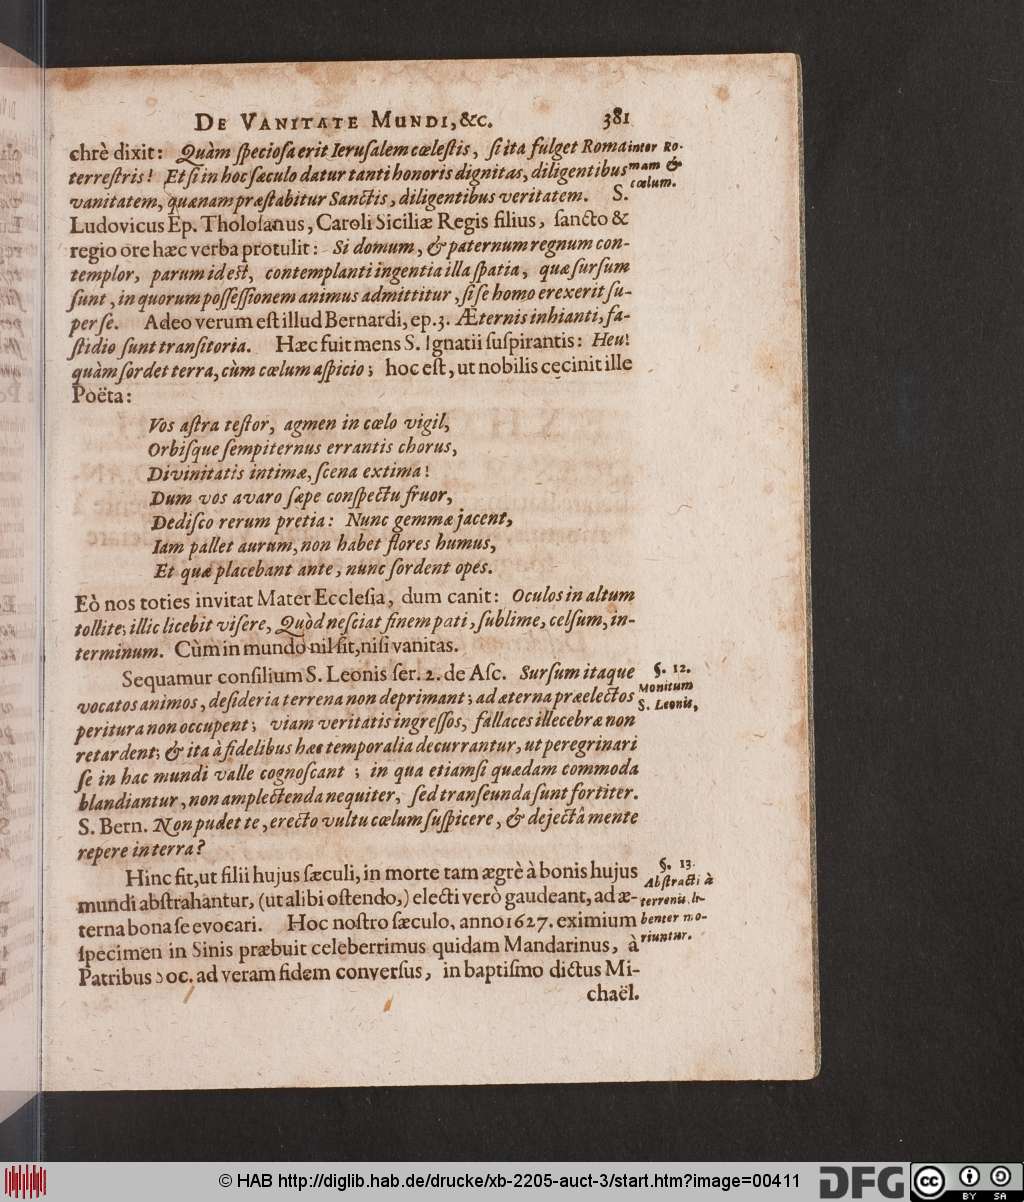 De Vanitate Mundi, &c. 381
chrè dixit: Quàm ſpecioſa erit Ieruſalem cœleſtis, ſi ita fulget Roma
inter Ro-
terreſtris! Et ſi in hoc ſæculo datur tanti honoris dignitas, diligentibus
mam &
vanitatem, quænam præſtabitur Sanctis, diligentibus veritatem. S.
cœlum.
Ludovicus Ep. Tholoſanus, Caroli Siciliæ Regis filius, ſancto &
regio ore hæc verba protulit: Si domum, & paternum regnum con-
templor, parum id eſt, contemplanti ingentia illa ſpatia, quæ ſurſum
ſunt, in quorum poſſeſſionem animus admittitur, ſi ſe homo erexerit ſu-
per ſe. Adeo verum eſt illud Bernardi, ep. 3. Æternis inhianti, fa-
ſtidio ſunt tranſitoria. Hæc fuit mens S. Ignatii ſuſpirantis: Heu!
quàm ſordet terra, cùm cœlum aſpicio; hoc eſt, ut nobilis cecinit ille
Poëta:
Vos aſtra teſtor, agmen in cœlo vigil,
Orbiſque ſempiternus errantis chorus,
Divinitatis intimæ, ſcena extima!
Dum vos avaro ſæpe conſpectu fruor,
Dediſco rerum pretia: Nunc gemmæ jacent,
Iam pallet aurum, non habet flores humus,
Et quæ placebant ante, nunc ſordent opes.
Eò nos toties invitat Mater Eccleſia, dum canit: Oculos in altum
tollite; illic licebit viſere, Quòd neſciat finem pati, ſublime, celſum, in-
terminum. Cùm in mundo nil ſit, niſi vanitas.
Sequamur conſilium S. Leonis ſer. 2. de Aſc. Surſum itaque
§. 12.
vocatos animos, deſideria terrena non deprimant; ad æterna præelectos
Monitum
S. Leonis,
peritura non occupent; viam veritatis ingreſſos, fallaces illecebræ non
retardent; & ita à fidelibus hæc temporalia decurrantur, ut peregrinari
ſe in hac mundi valle cognoſcant; in qua etiamſi quædam commoda
blandiantur, non amplectenda nequiter, ſed tranſeunda ſunt fortiter.
S. Bern. Non pudet te, erecto vultu cœlum ſuſpicere, & dejectâ mente
repere in terra?
Hinc fit, ut filii hujus ſæculi, in morte tam ægrè à bonis hujus
§. 13.
Abſtracti à
mundi abſtrahantur, (ut alibi oſtendo,) electi verò gaudeant, ad æ-
terrenis, li-
terna bona ſe evocari. Hoc noſtro ſæculo, anno 1627. eximium
benter mo-
ſpecimen in Sinis præbuit celeberrimus quidam Mandarinus, à
riuntur.
Patribus Soc. ad veram fidem converſus, in baptiſmo dictus Mi-
chaël.
© HAB http://diglib.hab.de/drucke/xb-2205-auct-3/start.htm?image=00411
DFG
cc BY SA